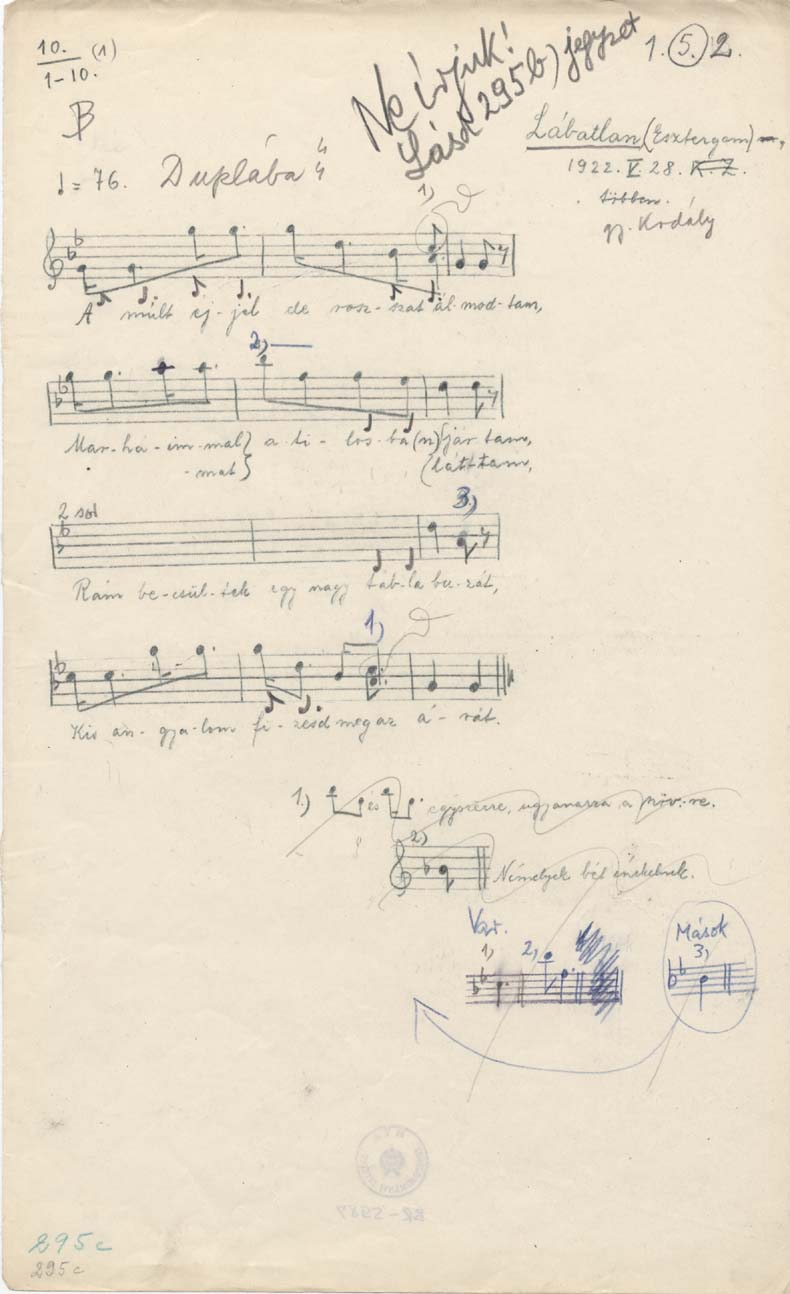 10. (1)
1-10.
B
Ne írjuk!
Lásd 295b) jegyzet
1. 5. 2.
Lábatlan (Esztergom),
1922. V. 28. K. Z.
többen.
gy. Kodály
♩ = 76. Duplába
1)
A múlt éj-jel de rosz-szat ál-mod-tam,
2)
Mar-há-im-mal} a ti-los-ba(n) {jár-tam,
-mat} {lát-tam,
2 sol
3)
Rám be-csül-tek egy nagy táb-la bu-zát,
1)
Kis an-gya-lom fi-zesd meg az á-rát.
1.) és egyszerre, ugyanarra a szöv.-re.
2)
Némelyek bét énekelnek.
Var.
1) 2)
Mások
3)
BR-5987
295c
295c